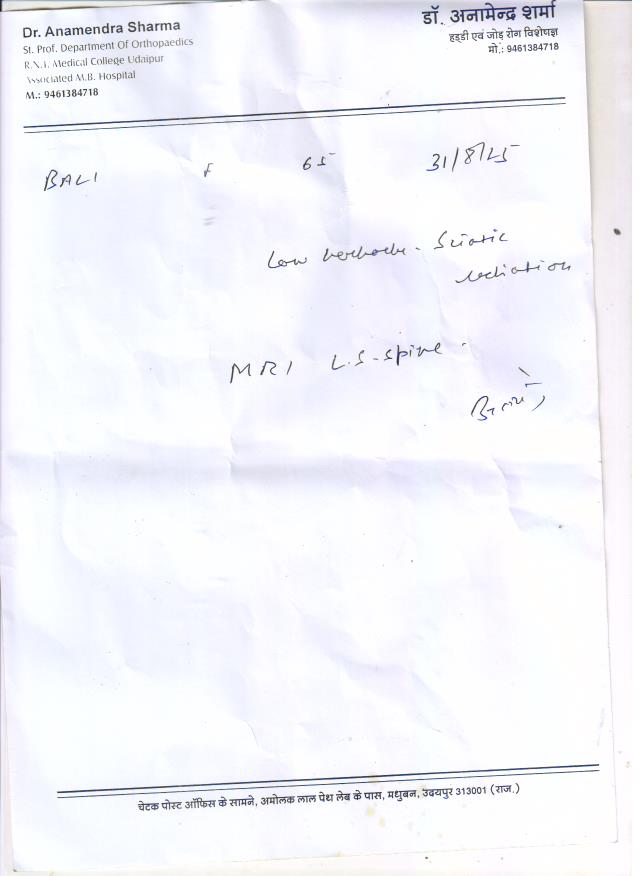 Dr. Anamendra Sharma
St. Prof. Department Of Orthopaedics
R.N.T. Medical College Udaipur
Associated M.B. Hospital
M.: 9461384718
डॉ. अनामेन्द्र शर्मा
हड्डी एवं जोड़ रोग विशेषज्ञ
मो.: 9461384718
BALI F 65 31/8/25
Low backache - Sciatic
radiation
MRI L.S-spine.
चेटक पोस्ट ऑफिस के सामने, अमोलक लाल पेथ लेब के पास, मधुबन, उदयपुर 313001 (राज.)